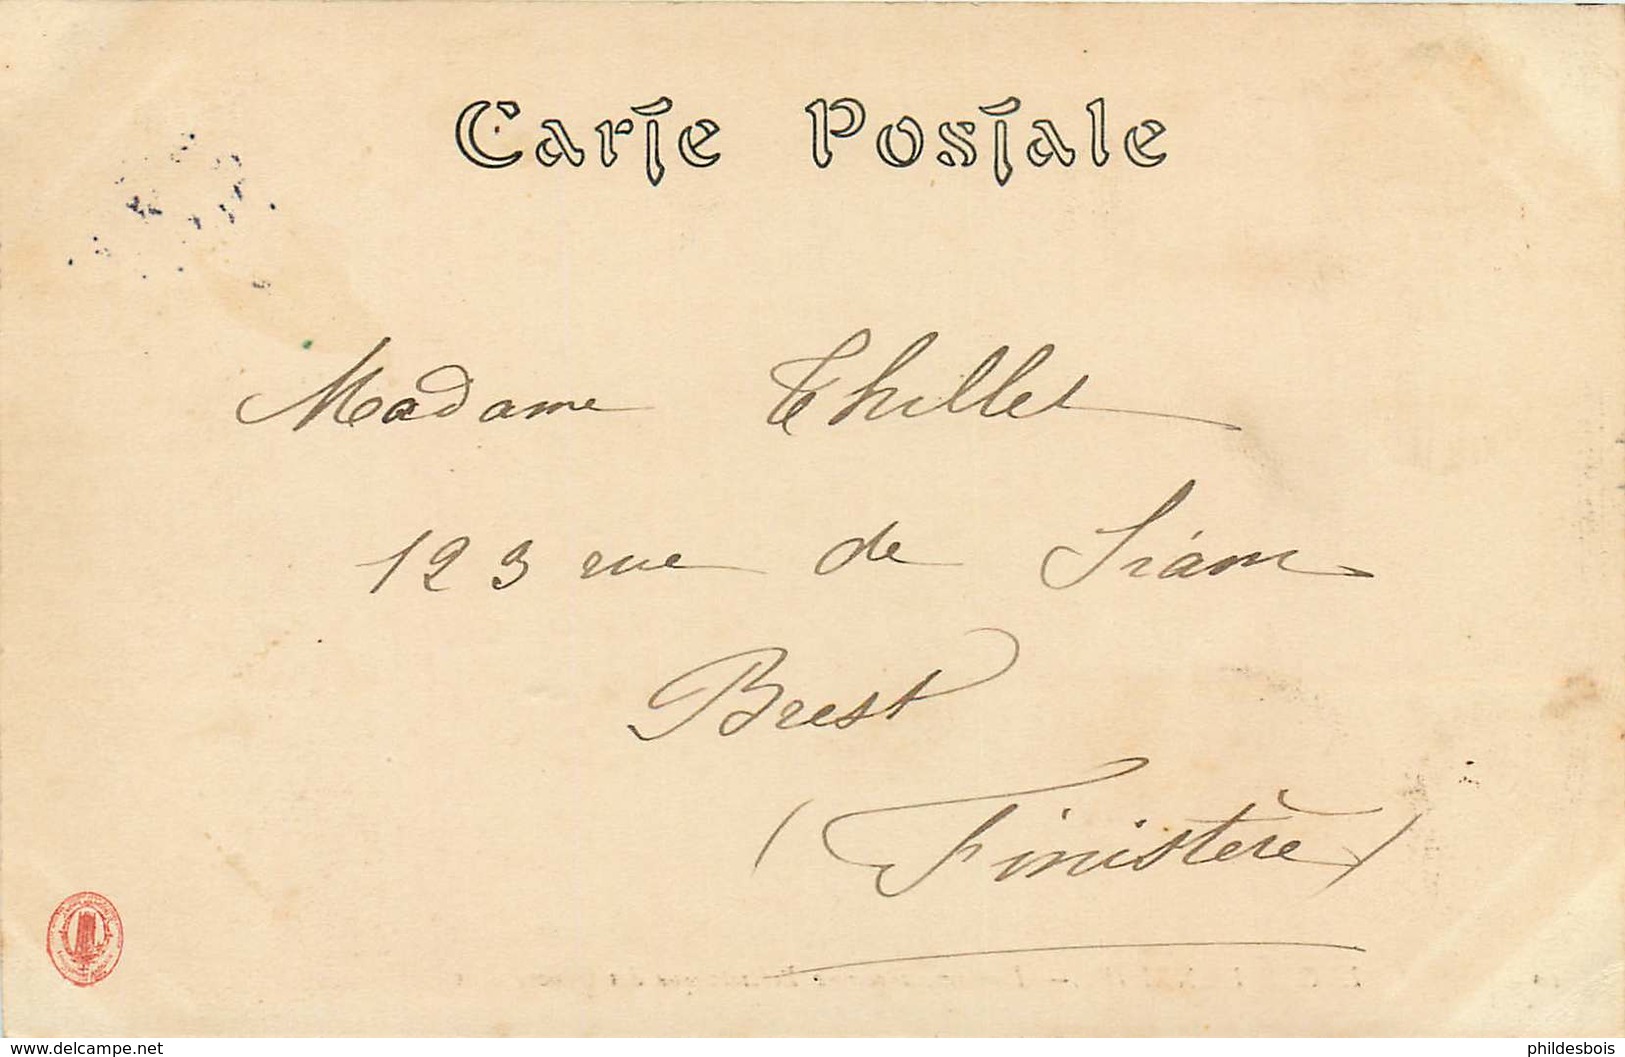 Carte Postale
Madame Thillet
123 rue de Siam
Brest
(Finistère)
www.delcampe.net
phildesbois